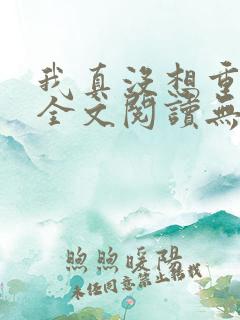 我真没想重
全文閱讀無
煦煦暖陽
未任同意禁止轉載